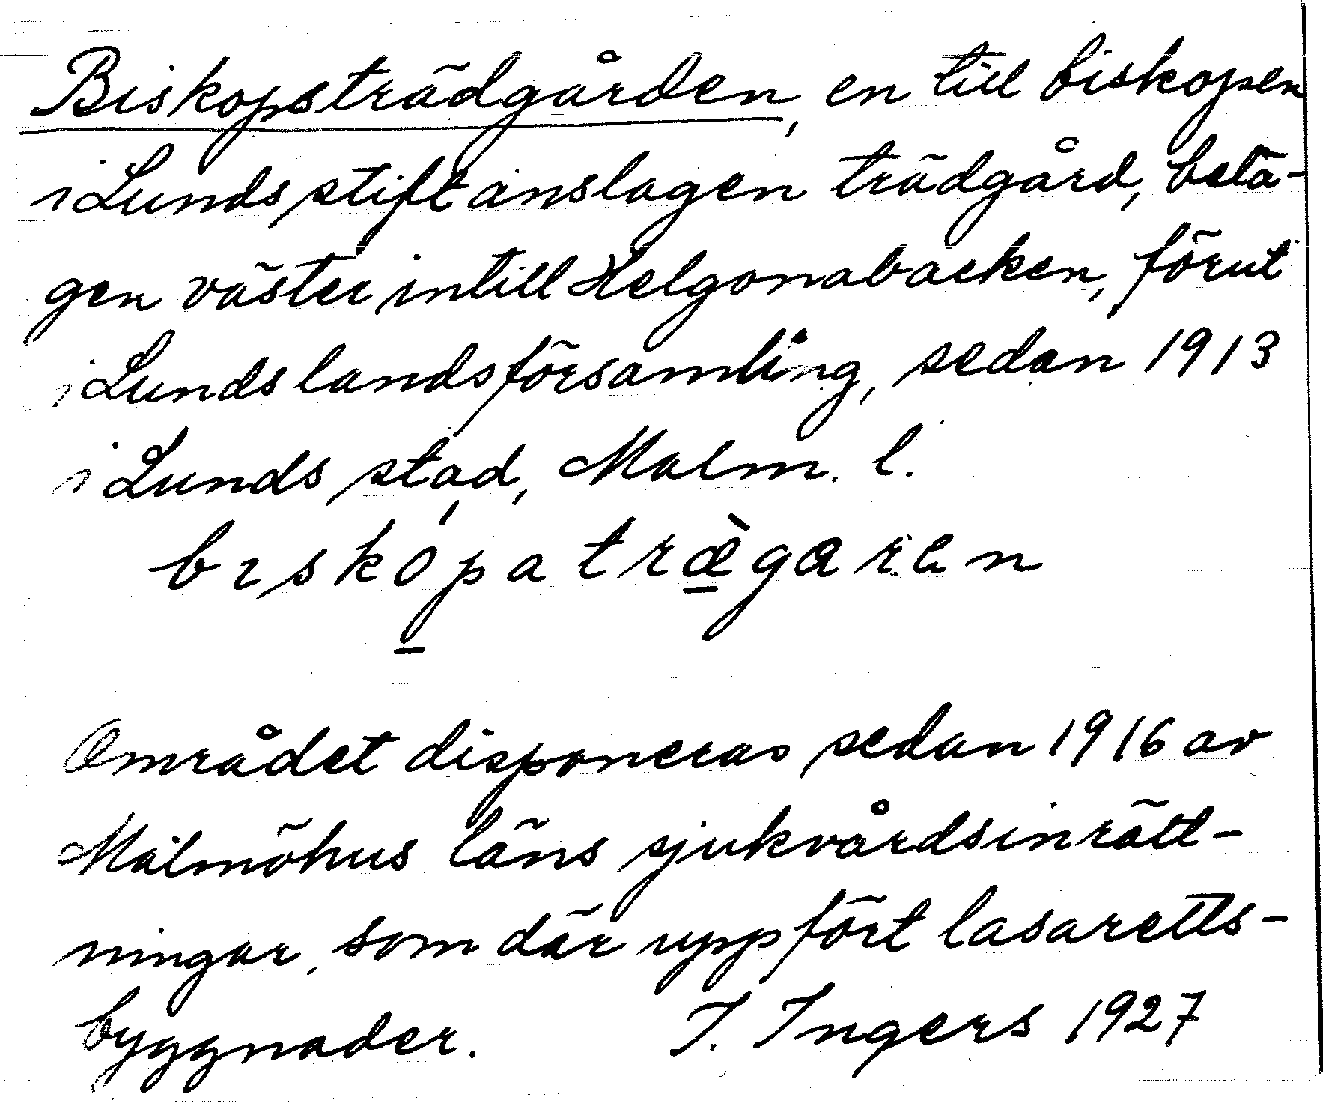 Biskopsträdgården, en till biskopen
i Lunds stift anslagen trädgård, belä-
gen väster intill Helgonabacken, förut
i Lunds landsförsamling, sedan 1913
i Lunds stad, Malm. l.
bɪskópatræ̀garen
Området disponeras sedan 1916 av
Malmöhus läns sjukvårdsinrätt-
ningar, som där uppfört lasaretts-
byggnader. I. Ingers 1927